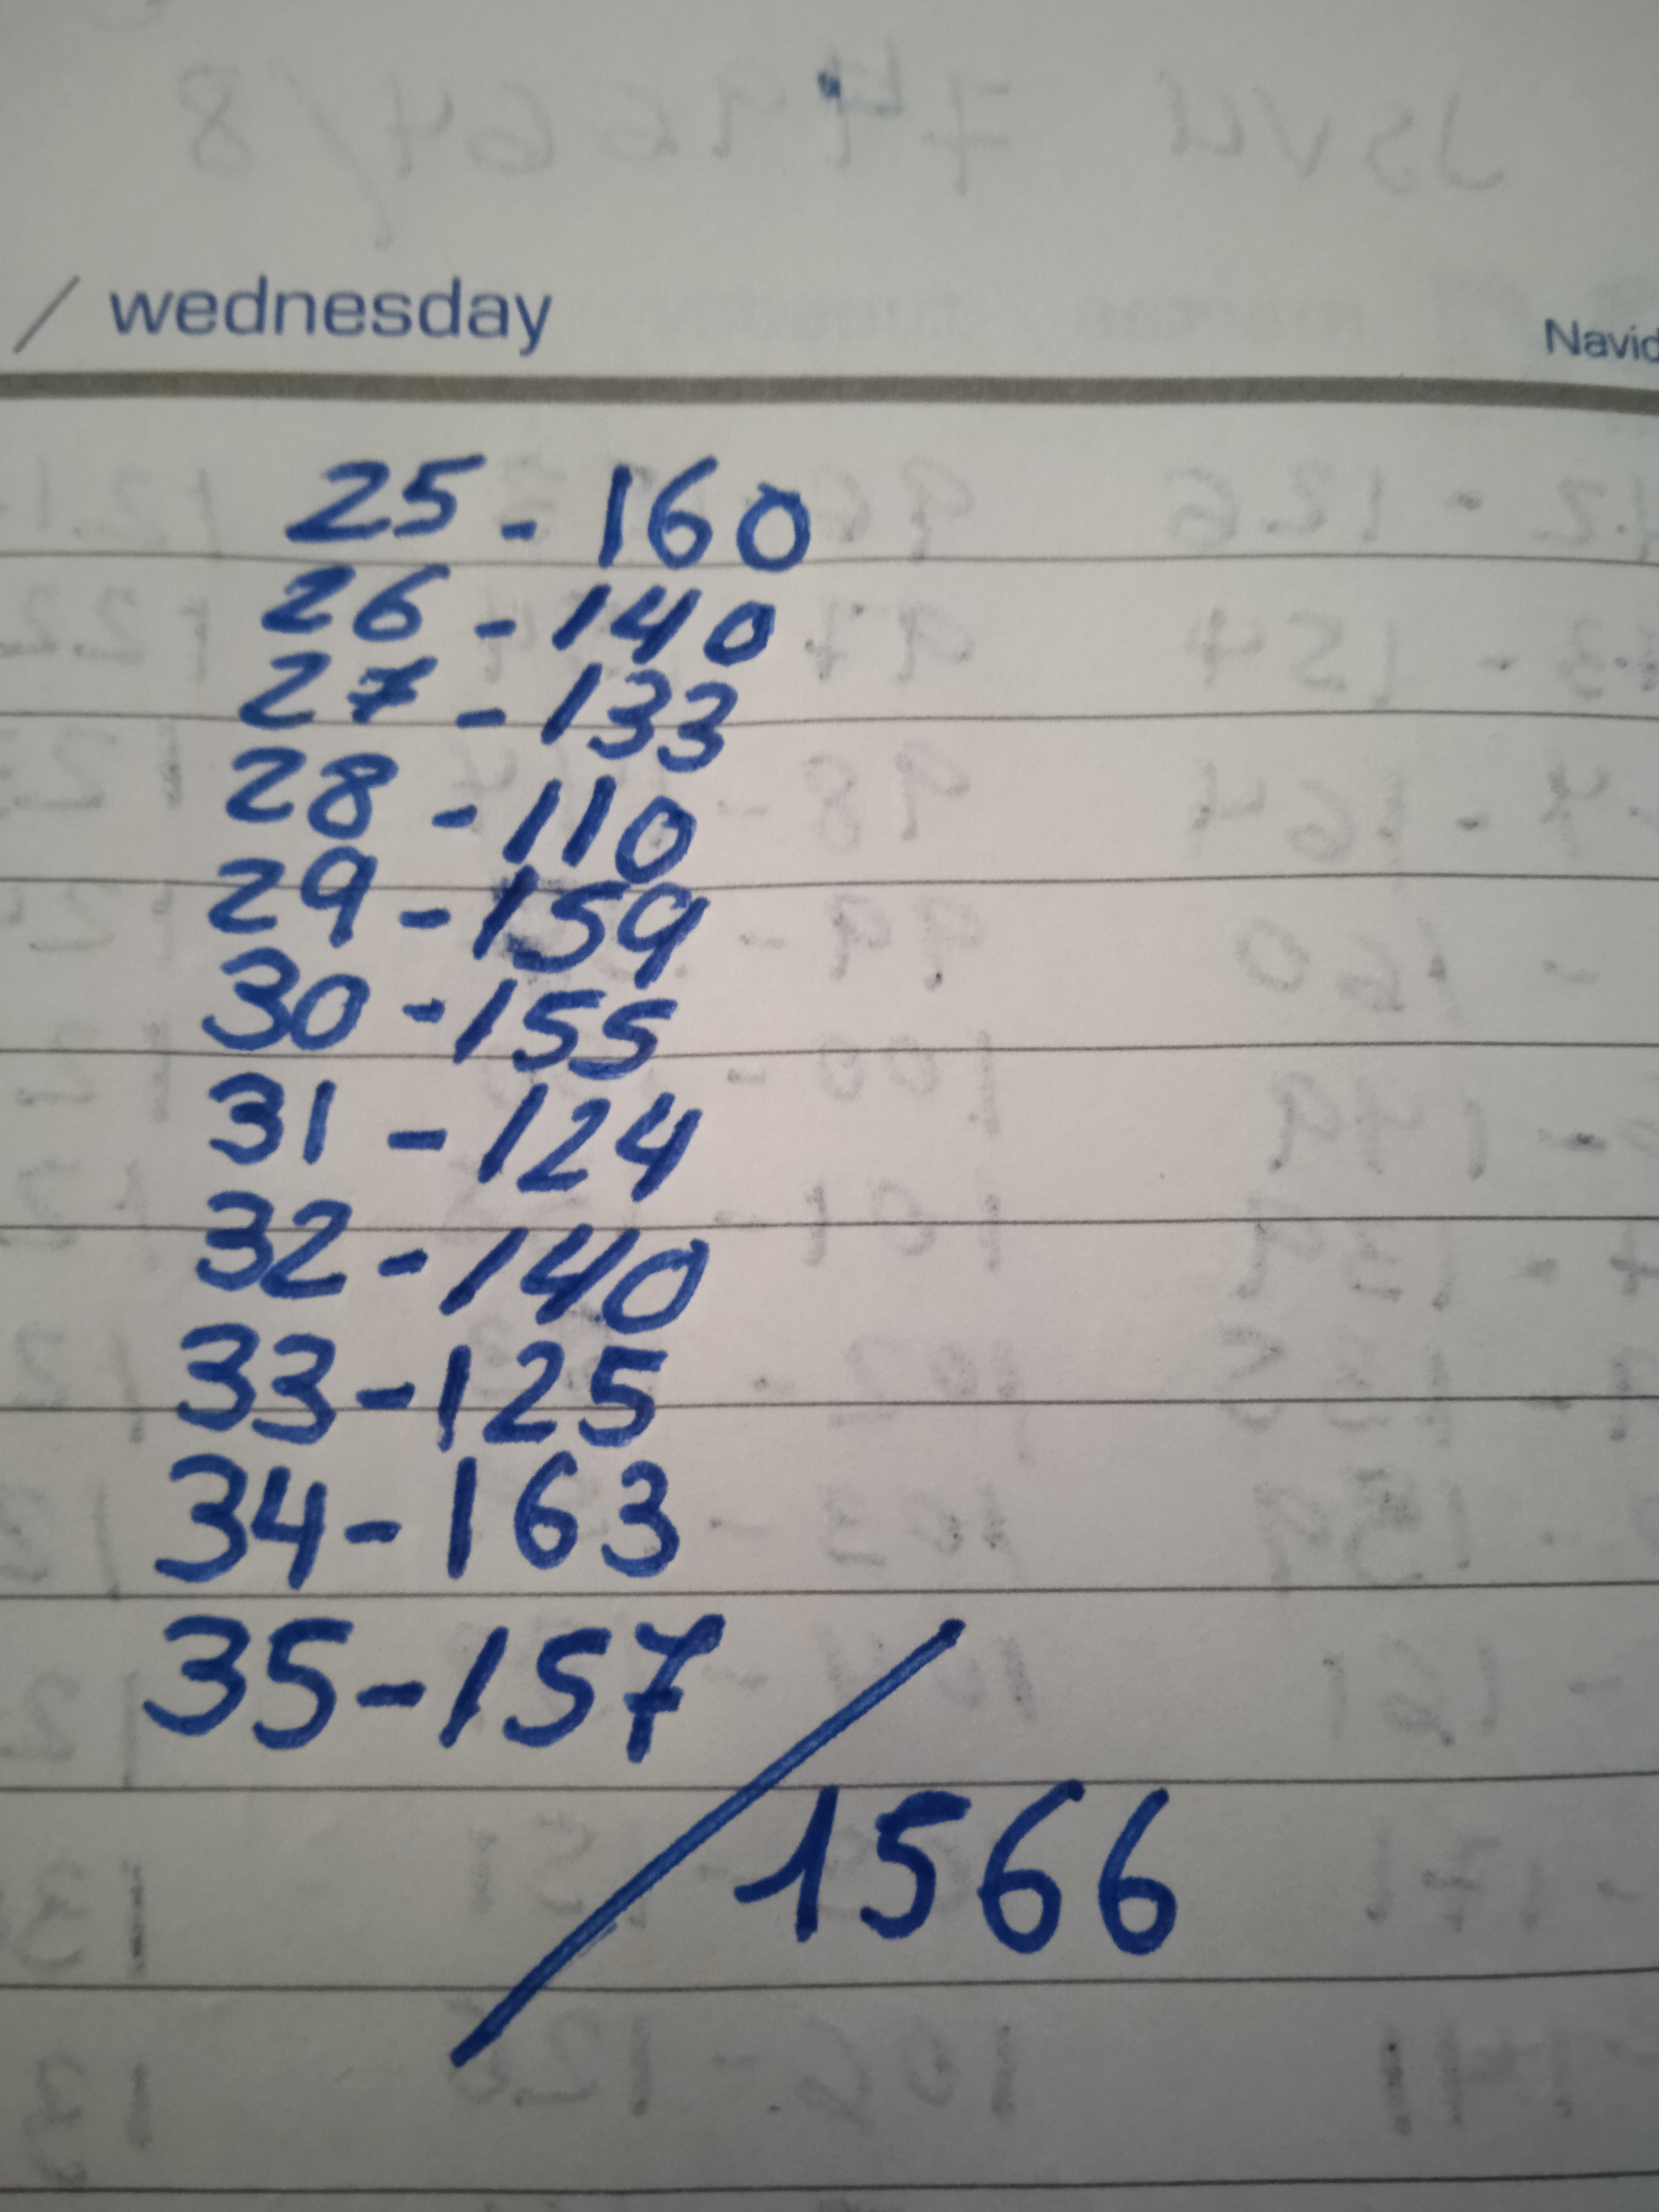 / wednesday
Navid
25 - 160
26 - 140
27 - 133
28 - 110
29 - 159
30 - 155
31 - 124
32 - 140
33 - 125
34 - 163
35 - 157
/ 1566